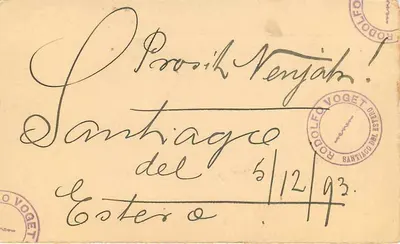 Prosit Neujahr!
Santiago
del 5/12/93.
Estero
RODOLFO VOGET
SANTIAGO DEL ESTERO
RODOLFO VOGET
RODOLFO VOGET